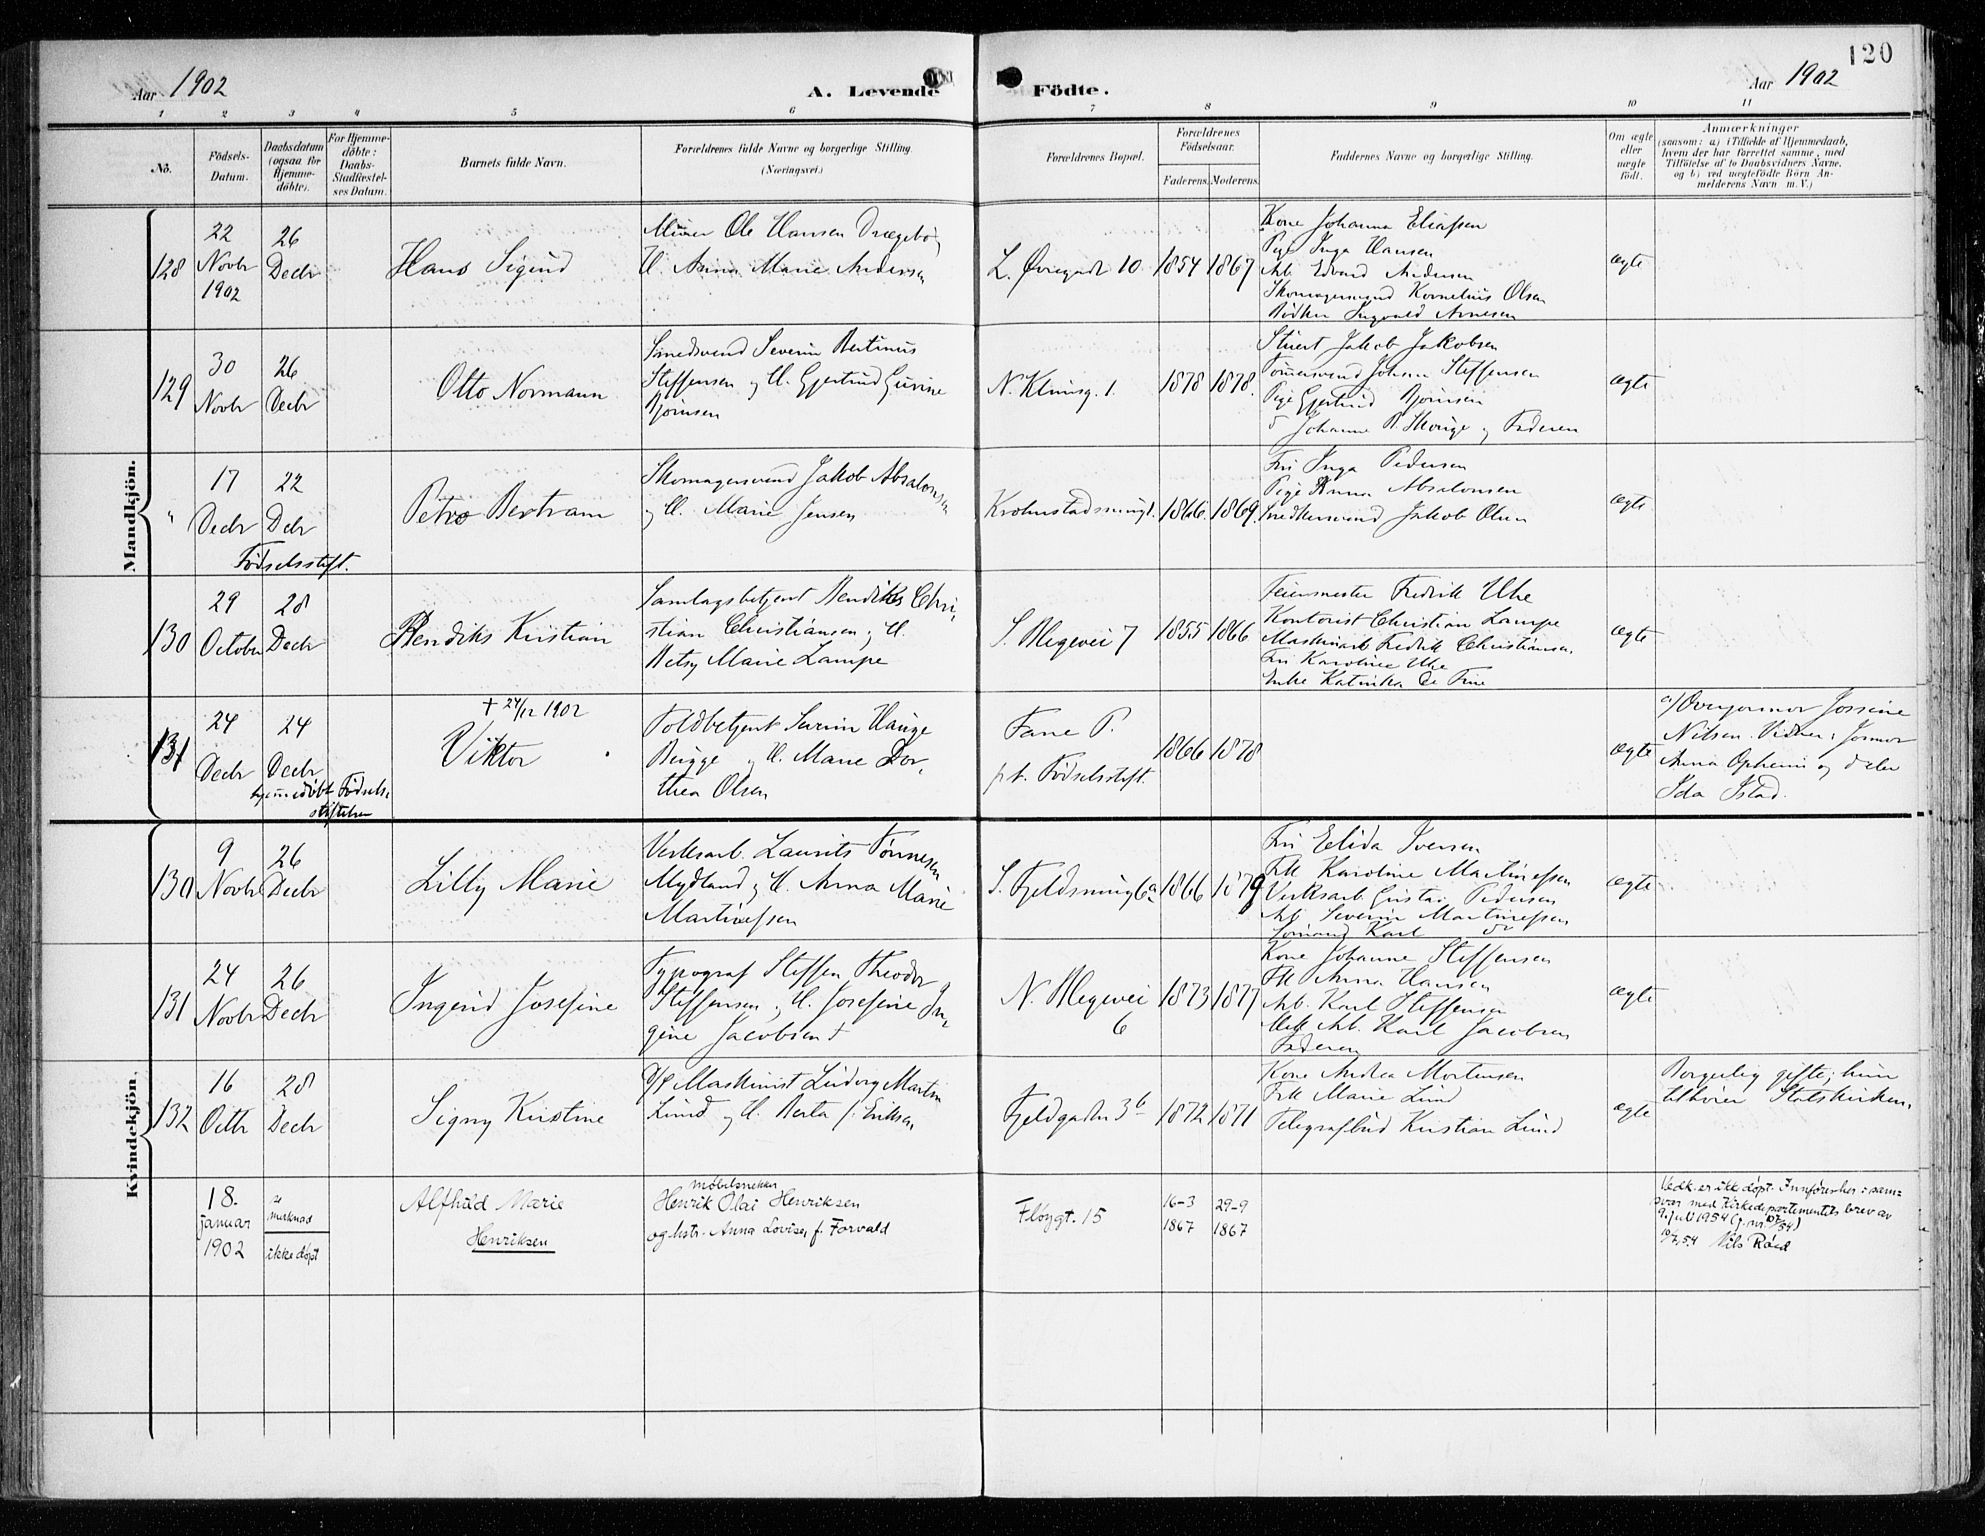 120
Aar 1902
A. Levende
Födte.
Aar 1902
1 2 3 4 5 6 7 8 9 10 11
No.
Födsels-
Datum.
Daabsdatum
(ogsaa for
Hjemme-
döbte).
For Hjemme-
döbte:
Daabs-
Stadfæstel-
ses Datum.
Barnets fulde Navn.
Forældrenes fulde Navne og borgerlige Stilling.
(Næringsvei.)
Forældrenes Bopæl.
Forældrenes
Födselsaar.
Faderens. Moderens.
Faddernes Navne og borgerlige Stilling.
Om ægte
eller
uægte
født.
Anmærkninger
(saasom: a) i Tilfælde af Hjemmedaab,
hvem der har forrettet samme, med
Tilföielse af to Daabsvidners Navne.
og b) ved uægtefödte Börn An-
melderens Navn m. V.)
Mandkjön.
128
22
Novbr
1902
26
Decbr
Hans Sigurd
Murer Ole Hansen Drægebø
H. Anna Marie Andersen
L. Øvregade 10
1854 1867
Kone Johanna Eliassen
Pige Inga Hansen
Arb. Edvard Andersen
Skomagersvend Kornelius Olsen
Bødker Ingvald Arnesen
ægte
129
30
Novbr
26
Decbr
Otto Normann
Smedsvend Severin Bertinus
Steffensen og H. Gjertrud Gurine
Bjørnsen
N. Klausg. 1.
1878 1878.
Stuert Jakob Jakobsen
Tømmersvend Johan Steffensen
Pige Gjertrud Bjørnsen
Johanne B. Skouge og Faderen
ægte
"
17
Decbr
22
Dcbr
Fødselsstift.
Petro Bertram
Skomagersvend Jakob Absalonsen
og H. Marie Jensen
Krohnstadsmug 1.
1866. 1869.
Fru Inga Pedersen
Pige Anna Absalonsen
Snedkersvend Jakob Olsen
ægte
130
29
October
28
Decbr
Hendiks Kristian
Samlagsbetjent Hendiks Chri-
stian Christiansen og H.
Betsy Marie Lampe
S. Blegevei 7
1855 1866
Feiermester Fredrik Uhe
Kontorist Christian Lampe
Maskinarb Fredrik Christiansen.
Fru Karoline Uhe
Enke Katinka De Fine
ægte
131
24
Decbr
24
Decbr
hjemmedøbt Fødsels-
stiftelsen
+ 24/12 1902
Viktor
Toldbetjent Severin Hauge
Brügge og H. Marie Dor-
thea Olsen
Fane P.
p.t. Fødselsstift.
1866 1878
ægte
a/ Overjormor Jossine
Nilsen. Vidner: Jormor
Anna Opheim og d eler
Ida Istad.
Kvindekjön.
130
9
Novbr
26
Decbr
Lilly Marie
Verksarb. Laurits Tønnesen
Mydland og H. Anna Marie
Martinessen
S. Fjeldsmug 6a
1866 1879
Fru Elida Iversen
Frk Karoline Martinessen
Verksarb Gustav Pedersen
Arb Severin Martinessen
Sømand Karl do
ægte
131
24
Novbr
26
Decbr
Ingrid Josefine
Typograf Steffen Theodor
Steffensen og H. Josefine In-
gine Jacobsen
N. Blegevei
6
1873 1877
Kone Johanne Steffensen
Frk Anna Hansen
Arb. Karl Steffensen
Arb. Karl Jacobsen
Faderen
ægte
132
16
Octbr
28
Decbr
Signy Kristine
Maskinist Ludvig Martin
Lund og H. Berta f. Eriksen
Fjeldgaden 3b
1872 1871
Kone Andrea Mortensen
Frk Marie Lund
Telegrafbud Kristian Lund
ægte
Borgerlig gifte; hun
tilhører Statskirken.
18.
januar
1902
se
merknad
ikke døpt
Alfhild Marie
Henriksen
møbelsnekker
Henrik Olai Henriksen
og hstr. Anna Lovise, f. Forvald
Fløygt. 15
16-3
1867
29-9
1867
Vedk. er ikke døpt. Innføres her i sam-
svar med Kirkedepartementets brev av
9. juli 1954 (j. nr. 107/54)
10/7.54 Nils Røed